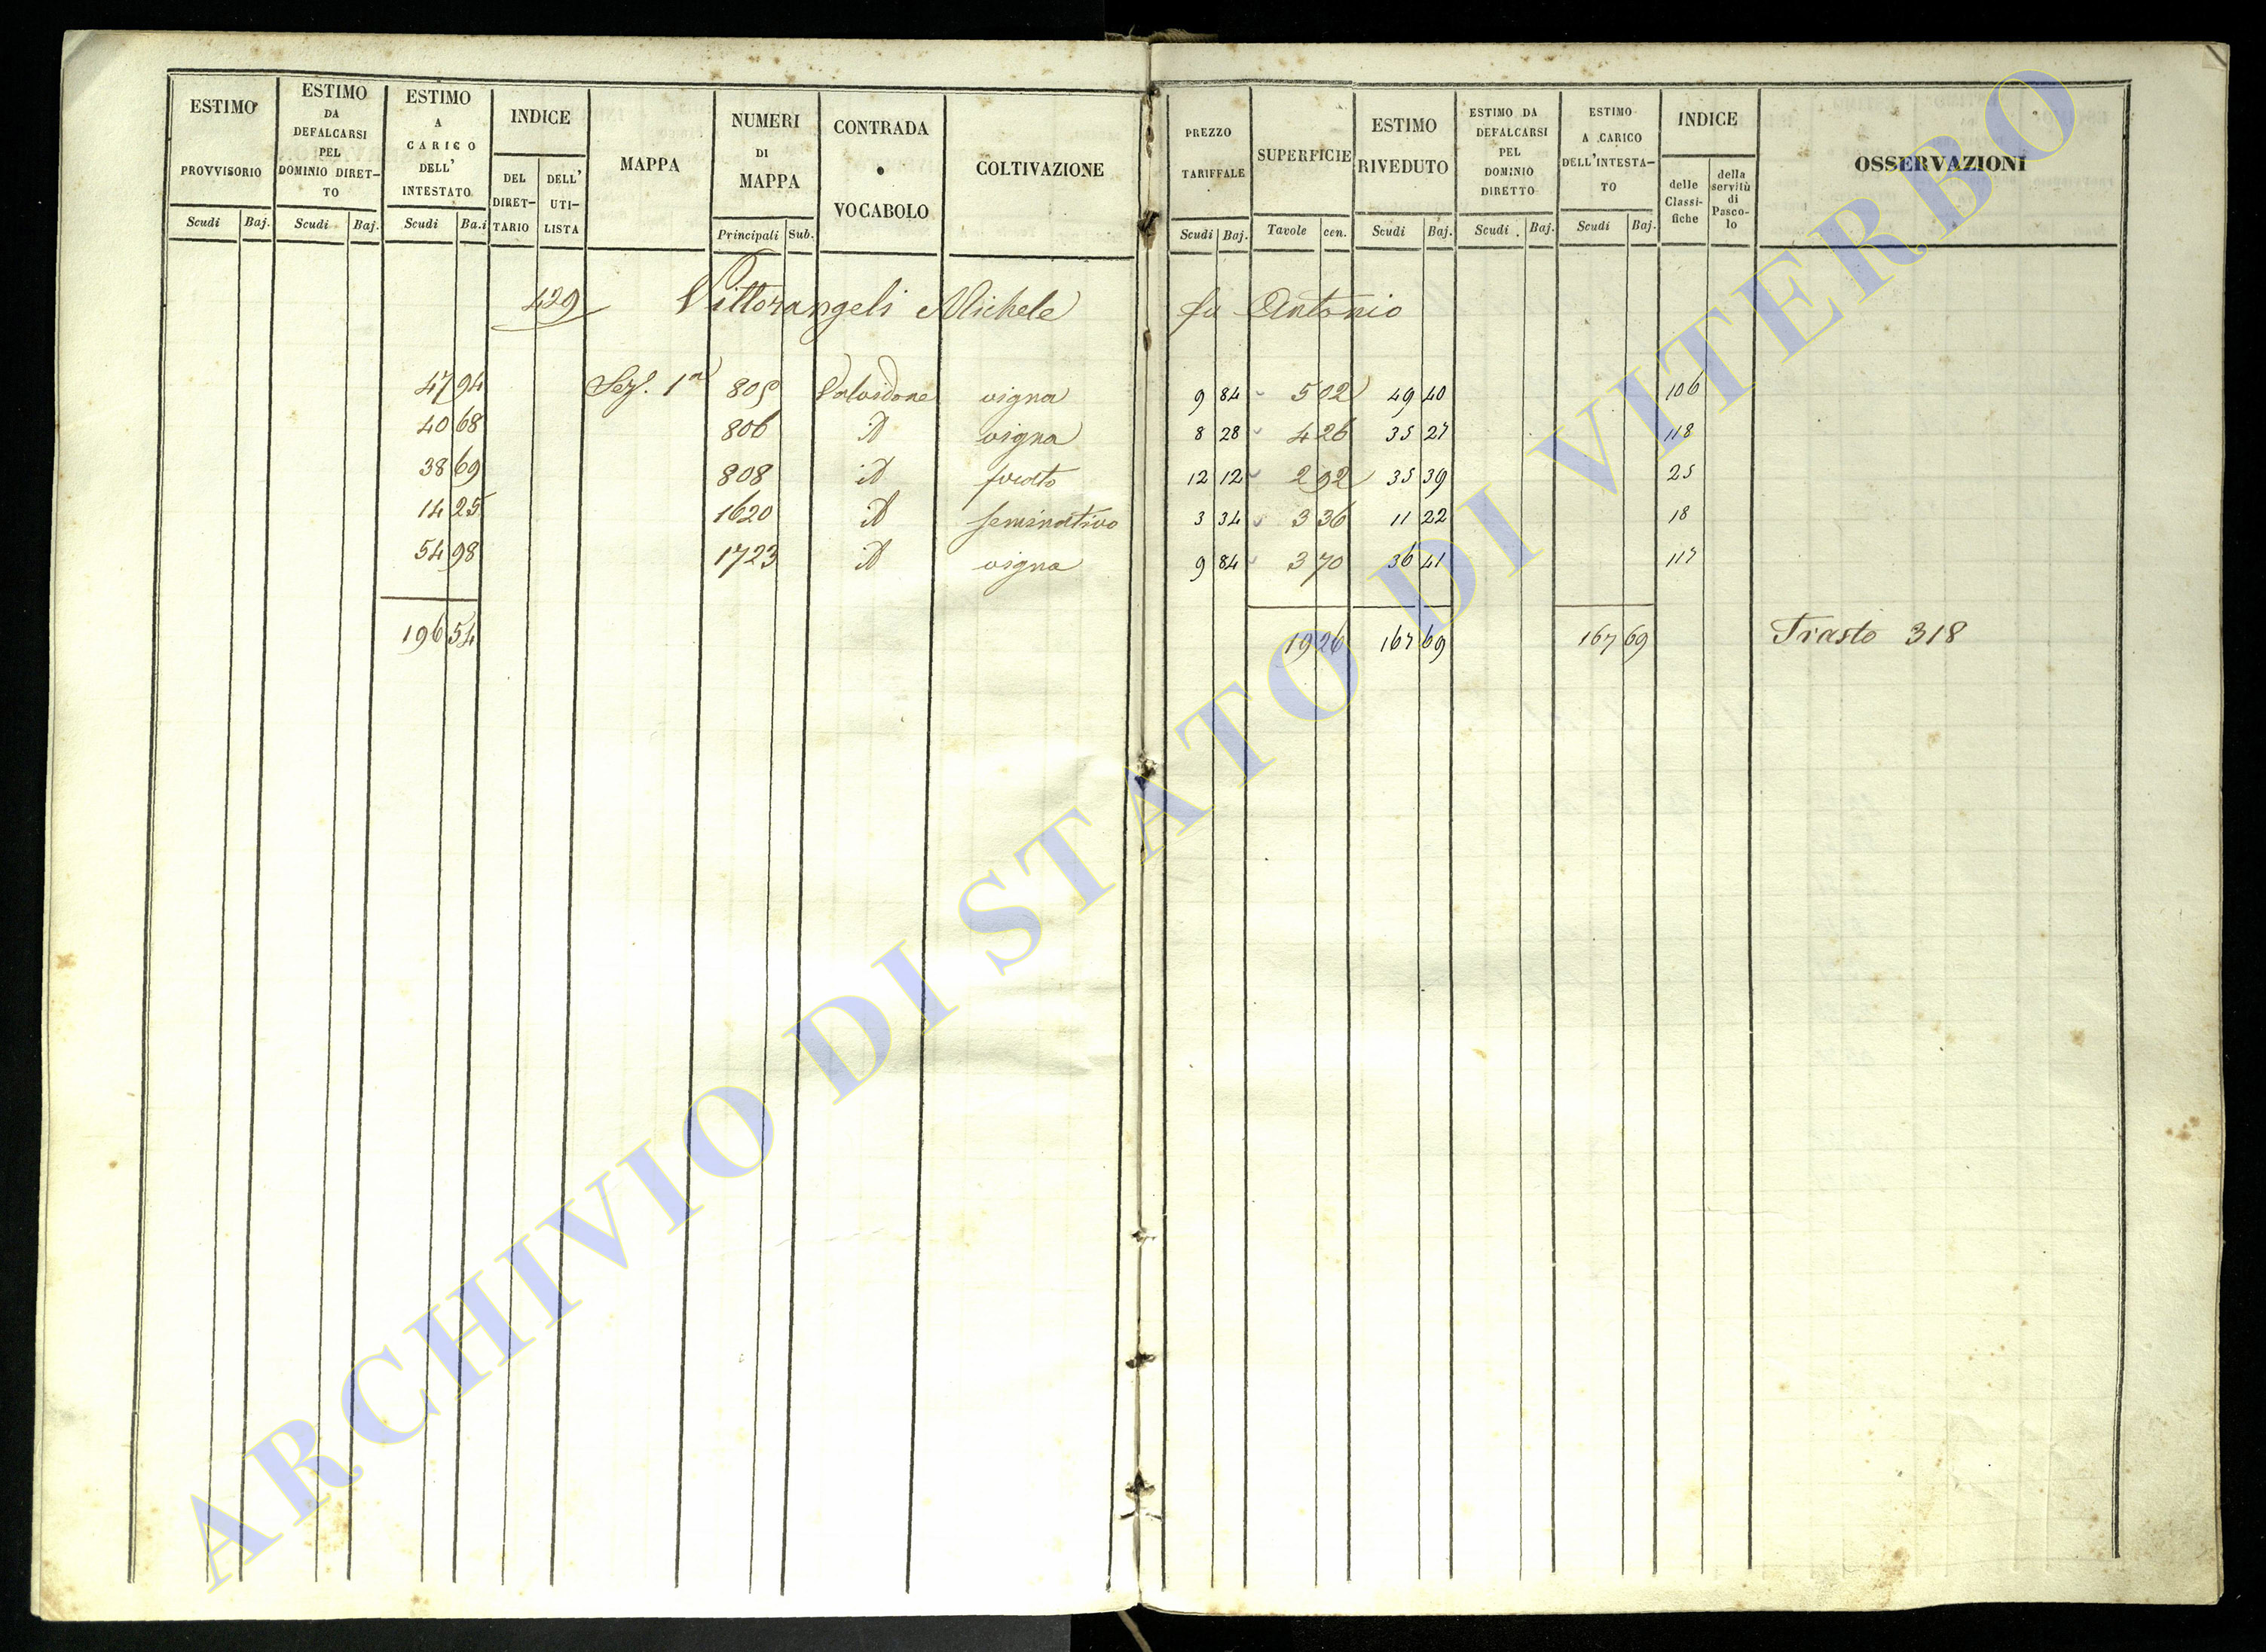 ESTIMO PROVVISORIO Scudi Baj.
ESTIMO DA DEFALCARSI PEL DOMINIO DIRET-TO Scudi Baj.
ESTIMO A CARICO DELL' INTESTATO Scudi Ba.i
INDICE DEL DIRET-TARIO DELL' UTI-LISTA
MAPPA
NUMERI DI MAPPA Principali Sub.
CONTRADA o VOCABOLO
COLTIVAZIONE
PREZZO TARIFFALE Scudi Baj.
SUPERFICIE Tavole cen.
ESTIMO RIVEDUTO Scudi Baj.
ESTIMO DA DEFALCARSI PEL DOMINIO DIRETTO Scudi Baj.
ESTIMO A CARICO DELL'INTESTA-TO Scudi Baj.
INDICE delle Classi-fiche della servitù di Pasco-lo
OSSERVAZIONI
429 Vittorangeli Michele fu Antonio
47 94 Sez. 1a 805 Valvidone vigna 9 84 5 02 49 40 106
40 68 806 id vigna 8 28 4 26 35 27 118
38 69 808 id 12 12 2 92 35 39 25
14 25 1620 id seminativo 3 34 3 36 11 22 18
54 98 1723 id vigna 9 84 3 70 36 41 117
196 54 19 26 167 69 167 69 Trasto 318
ARCHIVIO DI STATO DI VITERBO